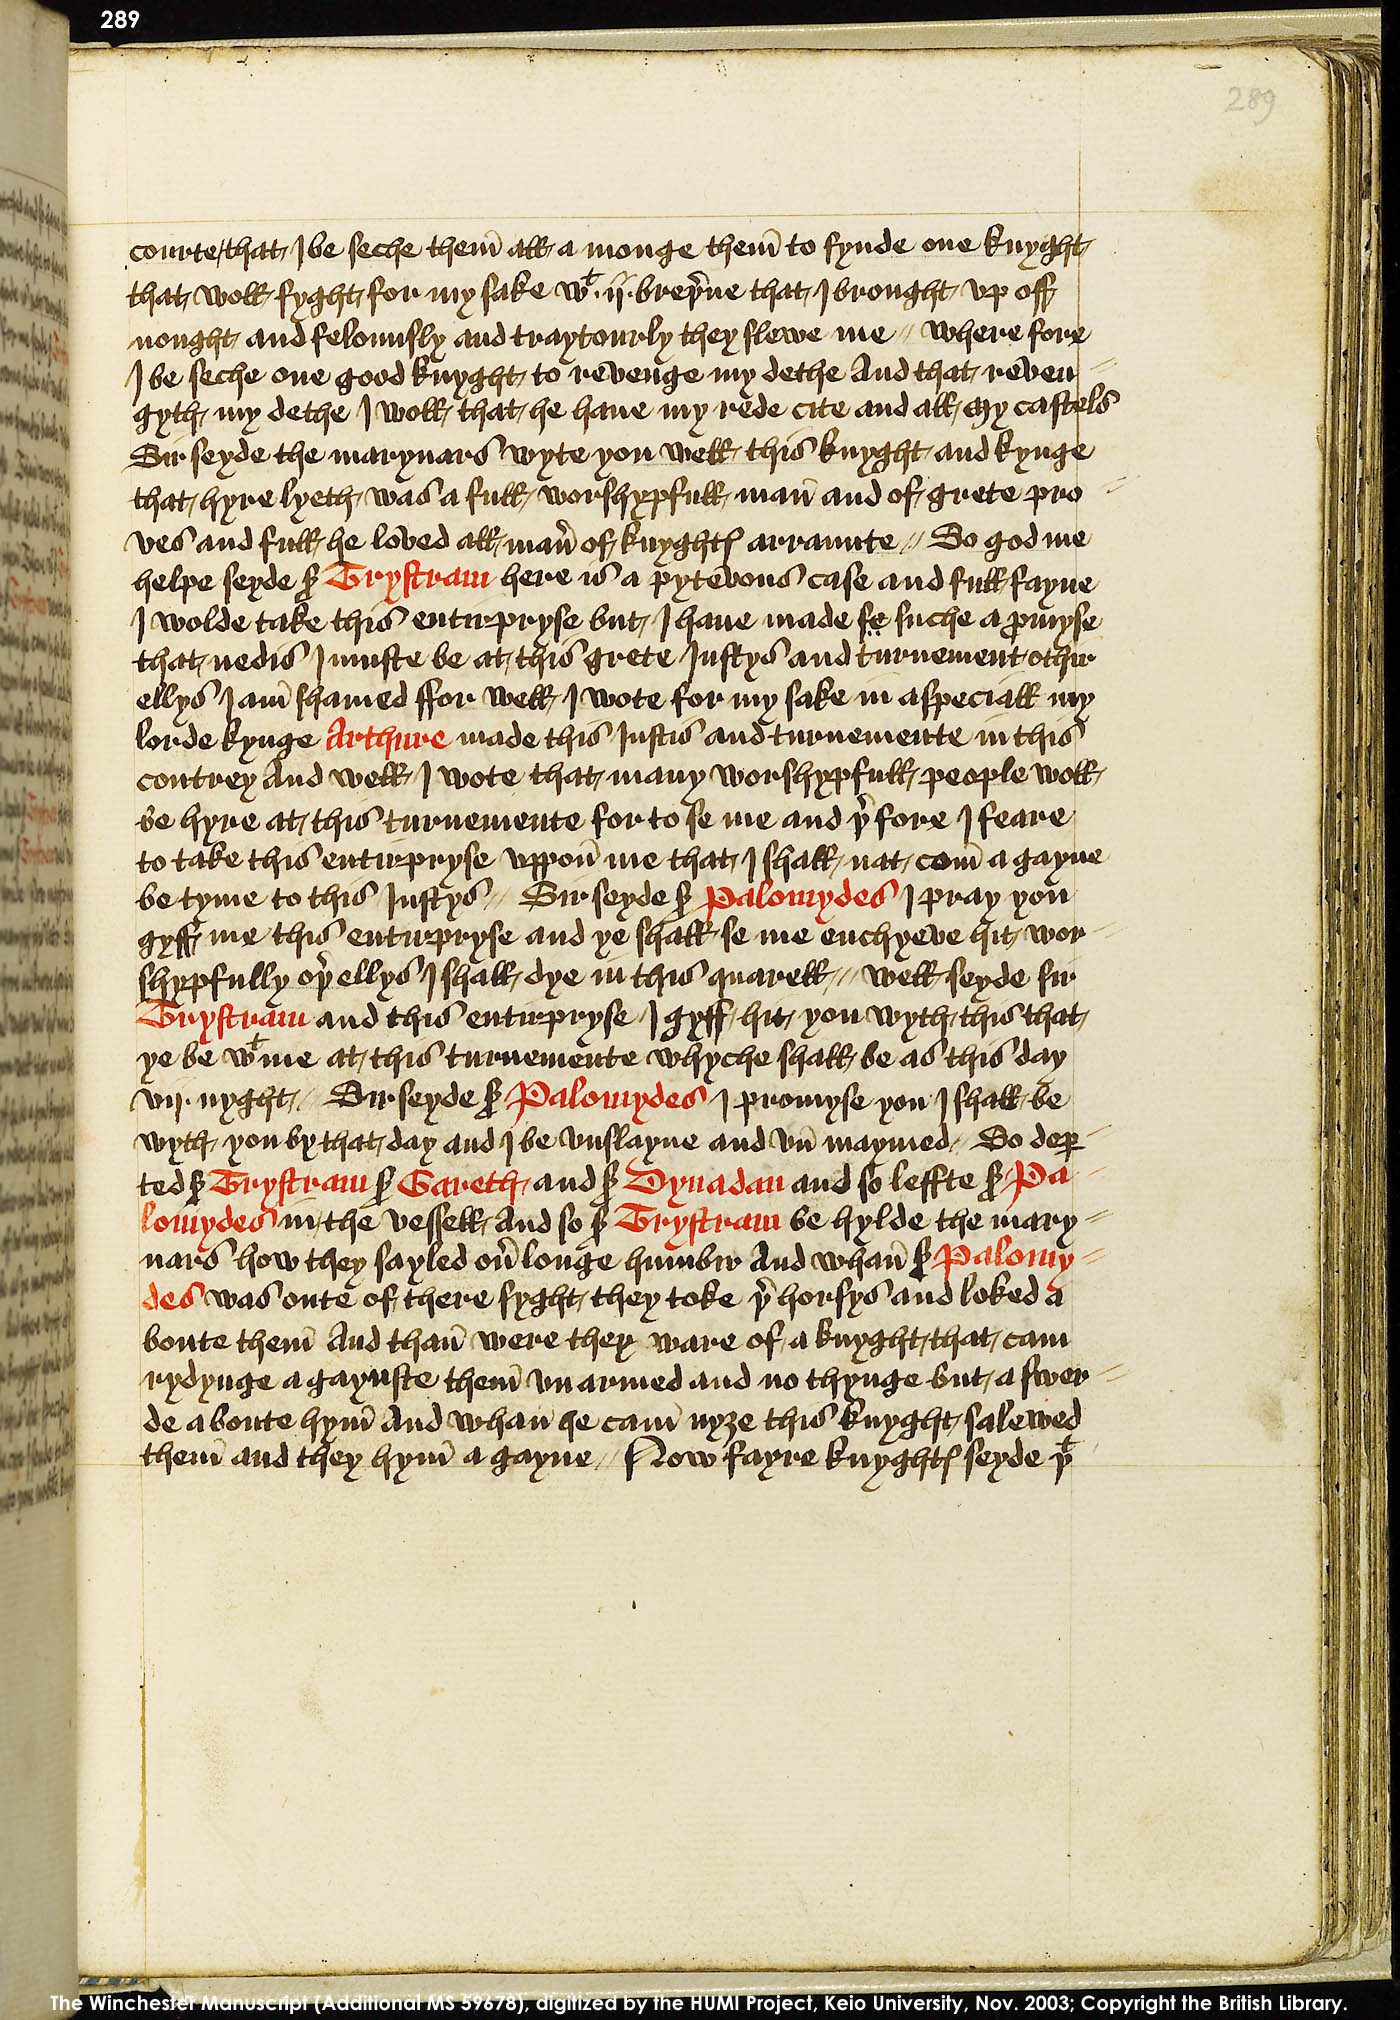 289
289
courte that I be seche them̄ all a monge them̄ to fynde one knyght
that woll fyght for my sake wᵗ .ij. breþ̄ne that I brought vp off
nought and felounsly and traytourly they slewe me // where fore
I be seche one good knyght to revenge my dethe And that reven=
gyth my dethe I woll that he haue my rede cite and all my castels
Sir seyde the marynars wyte you well this knyght and kynge
that hyre lyeth was a full worshypfull man̄ and of grete pro=
ves and full he loved all man̄ of knyghtꝭ arraunte // So god me
helpe seyde sꝰ Trystram here is a pytevous case and full fayne
I wolde take this entirpryse but I haue made ṣẹ suche a ꝓmyse
that nedis I muste be at this grete Iustys and turnement othir
ellys I am̄ shamed ffor well I wote for my sake in aspeciall my
lorde kynge Arthure made this Iustis and turnemente in this
contrey And well I wote that many worshypfull people woll
be hyre at this turnemente for to se me and þ̄ fore I feare
to take this entirpryse vppon̄ me that I shall nat com̄ a gayne
be tyme to this Iustys // Sir seyde sꝰ Palomydes I pray you
gyff me this entirpryse and ye shall se me enchyeve hit wor=
shypfully oþ̄ ellys I shall dye in this quarell // well seyde sir
Trystram and this entirpryse I gyff hit you wyth this that
ye be wᵗ me at this turnemente whyche shall be as this day
vij nyght // Sir seyde sꝰ Palomydes I promyse you I shall be
wyth you by that day and I be vnslayne and vn̄ maymed // So deꝑ=
ted sꝰ Trystram sꝰ Gareth and sꝰ Dynadan and so leffte sꝰ Pa=
lomydes in the vessell And so sꝰ Trystram be hylde the mary=
nars how they sayled ou̅ longe humbir And whan̄ sꝰ Palomy=
des was oute of there syght they toke þ̄ horsys and loked a
boute them̄ And than̄ were they ware of a knyght that cam
rydynge a gaynste them̄ vn armed and no thynge but a swer=
de a boute hym̄ And whan̄ he cam̄ nyȝe this knyght salewed
them̄ and they hym̄ a gayne // Now fayre knyghtꝭ seyde þᵗ
The Winchester Manuscript (Additional MS 59678), digitized by the HUMI Project, Keio University, Nov. 2003; Copyright the British Library.